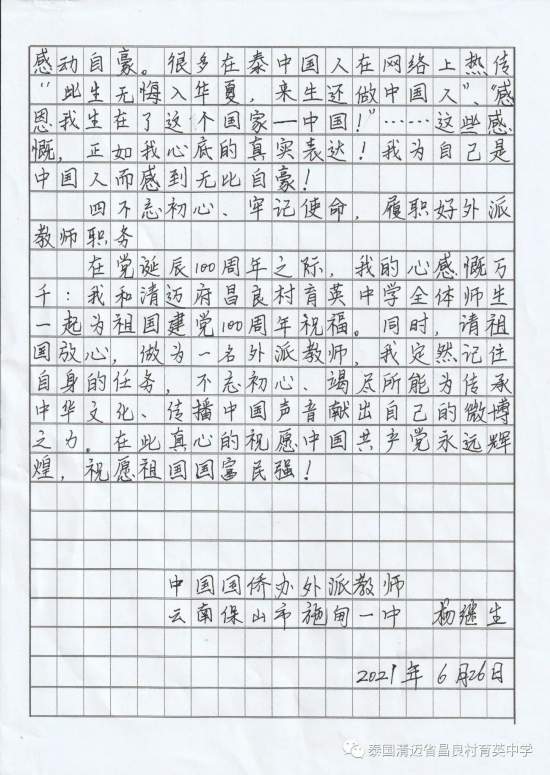 感动自豪。很多在泰中国人在网络上热传
“此生无悔入华夏，来生还做中国人”、“感
恩我生在了这个国家—中国！”……这些感
慨，正如我心底的真实表达！我为自己是
中国人而感到无比自豪！
四不忘初心、牢记使命，履职好外派
教师职务
在党诞辰100周年之际，我的心感慨万
千：我和清迈府昌良村育英中学全体师生
一起为祖国建党100周年祝福。同时，请祖
国放心，做为一名外派教师，我定然记住
自身的任务，不忘初心、竭尽所能为传承
中华文化、传播中国声音献出自己的微博
之力。在此真心的祝愿中国共产党永远辉
煌，祝愿祖国国富民强！
中国国侨办外派教师
云南保山市施甸一中 杨继生
2021年6月26日
泰国清迈省昌良村育英中学